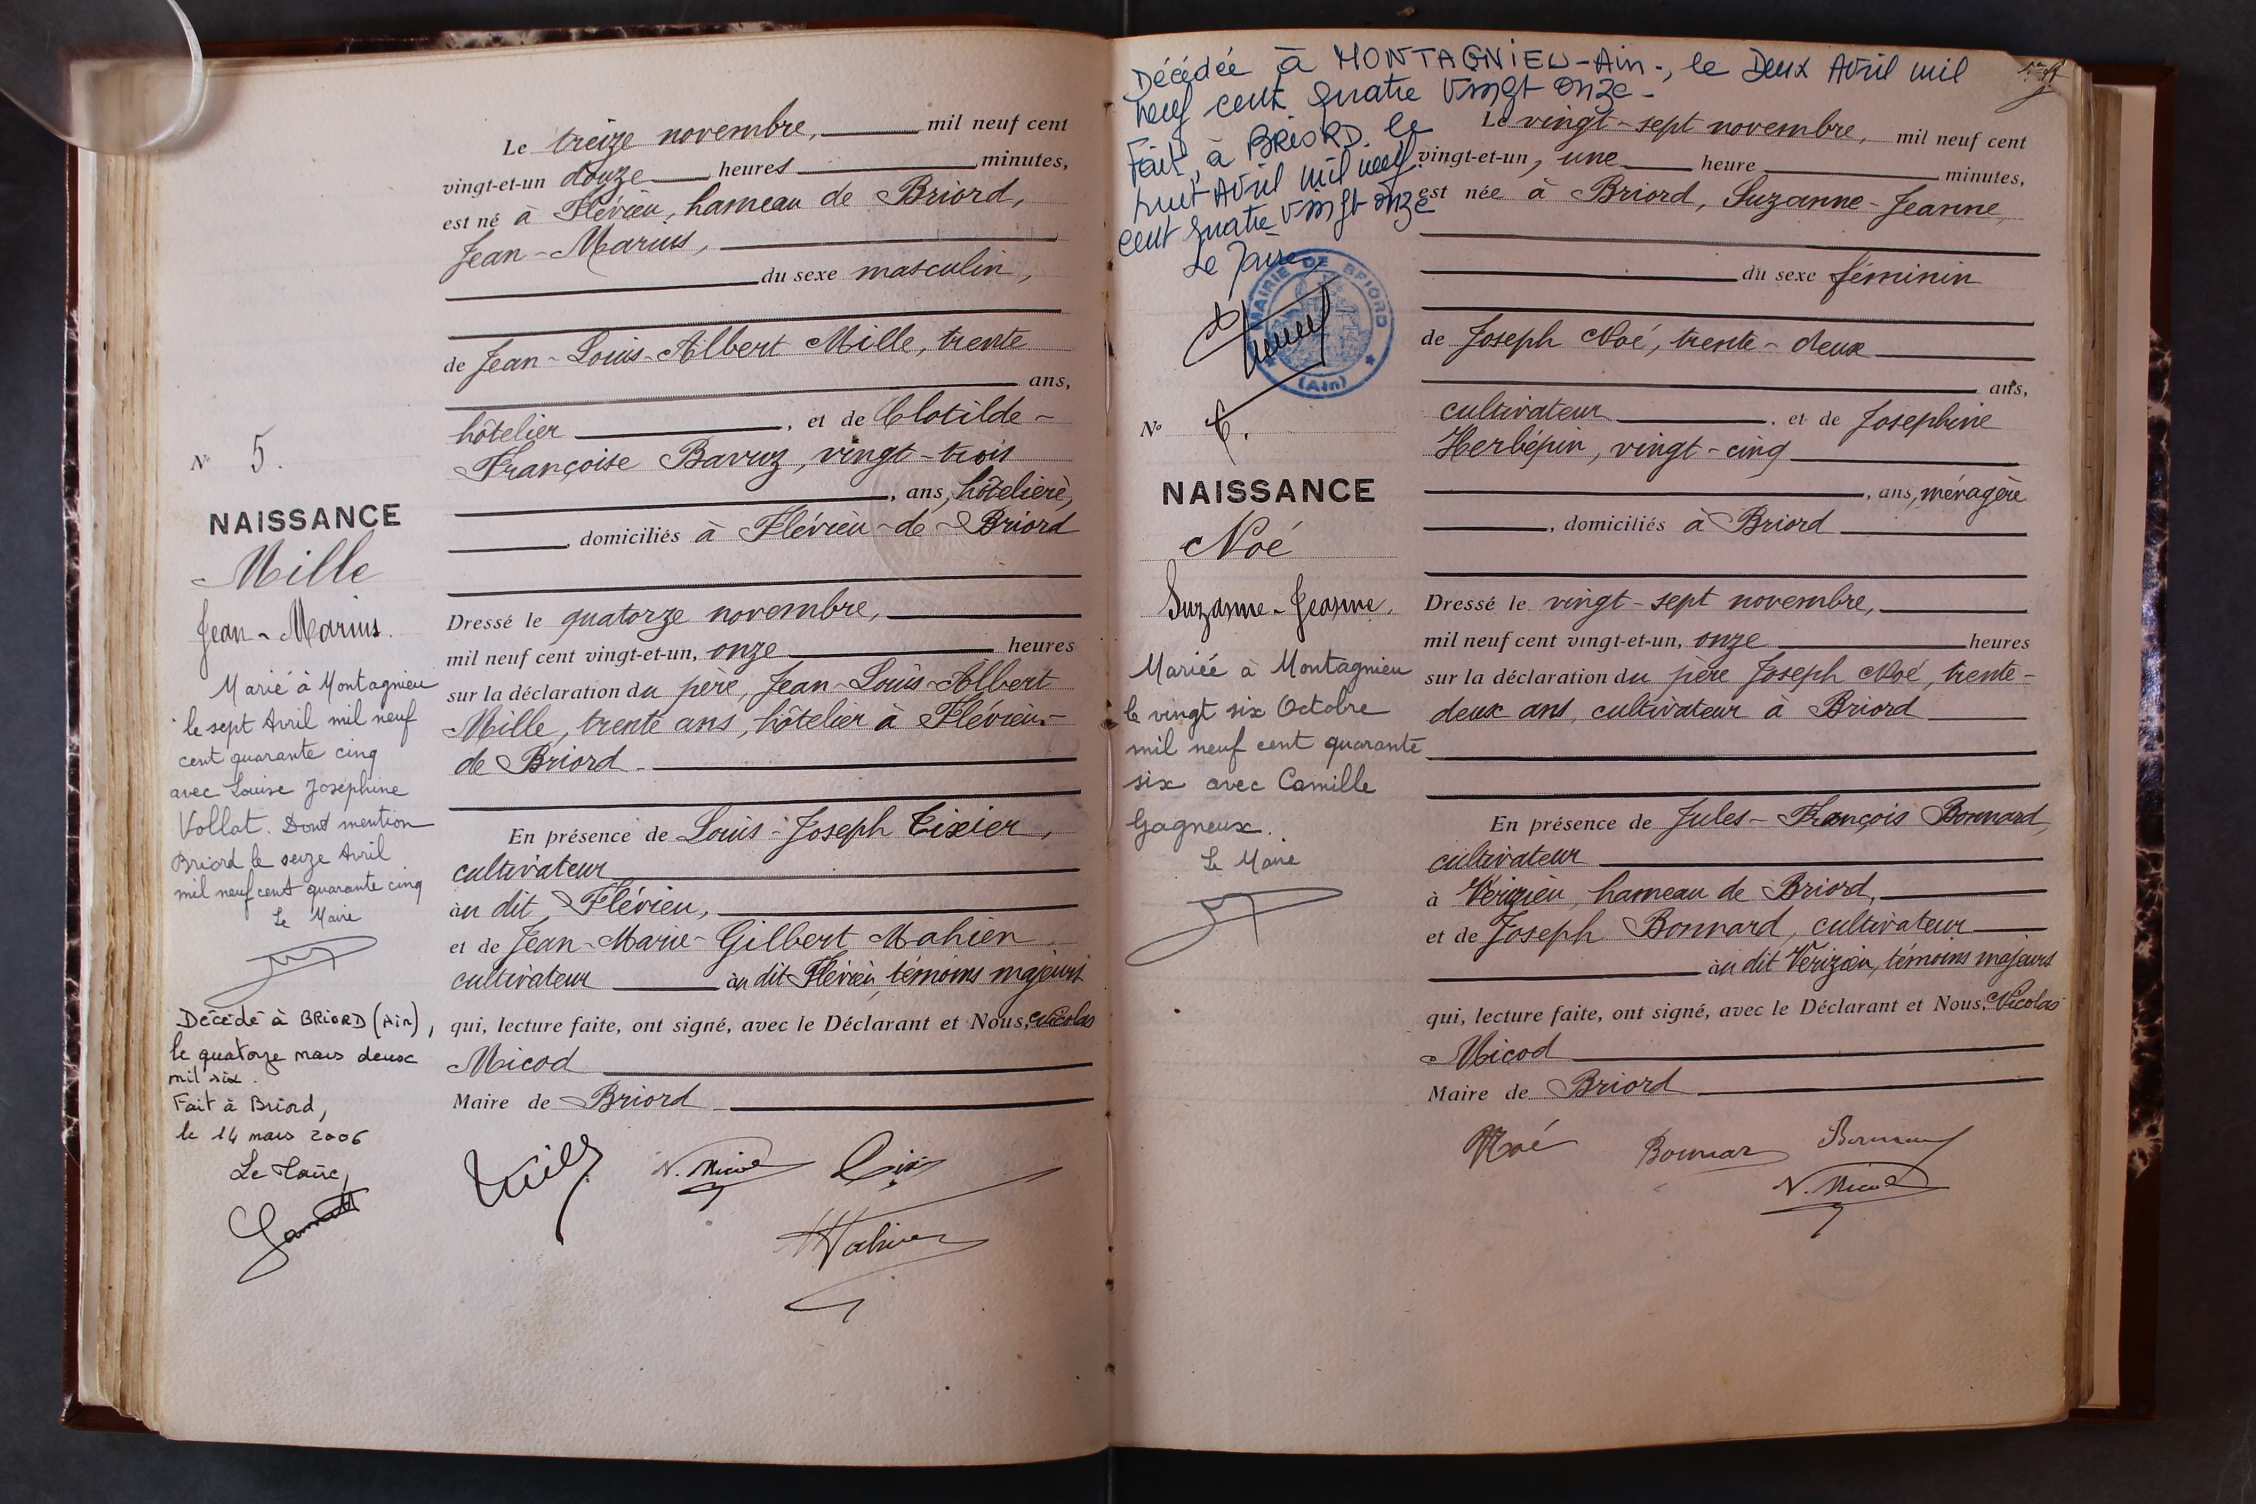 N° 5.
NAISSANCE
Mille
Jean-Marius.
Marié à Montagnieu
le sept Avril mil neuf
cent quarante cinq
avec Louise Joséphine
Vollat. Dont mention
Briord le seize Avril
mil neuf cent quarante cinq
Le Maire
Décédé à BRIORD (Ain),
le quatorze mars deux
mil six.
Fait à Briord,
le 14 mars 2006
Le Maire,
Le treize novembre, mil neuf cent
vingt-et-un douze heures minutes,
est né à Flévieu, hameau de Briord,
Jean-Marius,
du sexe masculin,
de Jean-Louis-Albert Mille, trente
ans,
hôtelier, et de Clotilde-
Françoise Bavuz, vingt-trois
, ans, hôtelière,
, domiciliés à Flévieu-de-Briord
Dressé le quatorze novembre,
mil neuf cent vingt-et-un, onze heures
sur la déclaration du père, Jean-Louis-Albert
Mille, trente ans, hôtelier à Flévieu-
de Briord.
En présence de Louis-Joseph Tixier,
cultivateur
au dit Flévieu,
et de Jean-Marie-Gilbert Mahien
cultivateur au dit Flévieu, témoins majeurs
qui, lecture faite, ont signé, avec le Déclarant et Nous, Nicolas
Micod
Maire de Briord
N. Micod
Décédée à MONTAGNIEU-Ain-, le Deux Avril mil
neuf cent quatre vingt onze-
Fait à BRIORD le
huit Avril mil neuf
cent quatre vingt onze
Le Maire
MAIRIE DE BRIORD
(Ain)
N° 6.
NAISSANCE
Noé
Suzanne-Jeanne.
Mariée à Montagnieu
le vingt six Octobre
mil neuf cent quarante
six avec Camille
Gagneux.
Le Maire
Le vingt-sept novembre, mil neuf cent
vingt-et-un, une heure minutes,
est née à Briord, Suzanne-Jeanne,
du sexe féminin
de Joseph Noé, trente-deux
ans,
cultivateur, et de Joséphine
Herbépin, vingt-cinq
, ans, ménagère
, domiciliés à Briord
Dressé le vingt-sept novembre,
mil neuf cent vingt-et-un, onze heures
sur la déclaration du père Joseph Noé, trente-
deux ans, cultivateur à Briord
En présence de Jules-François Bonnard,
cultivateur
à Vérizieu, hameau de Briord,
et de Joseph Bonnard, cultivateur
au dit Vérizieu, témoins majeurs
qui, lecture faite, ont signé, avec le Déclarant et Nous, Nicolas
Micod
Maire de Briord
Noé Bonnar
N. Micod